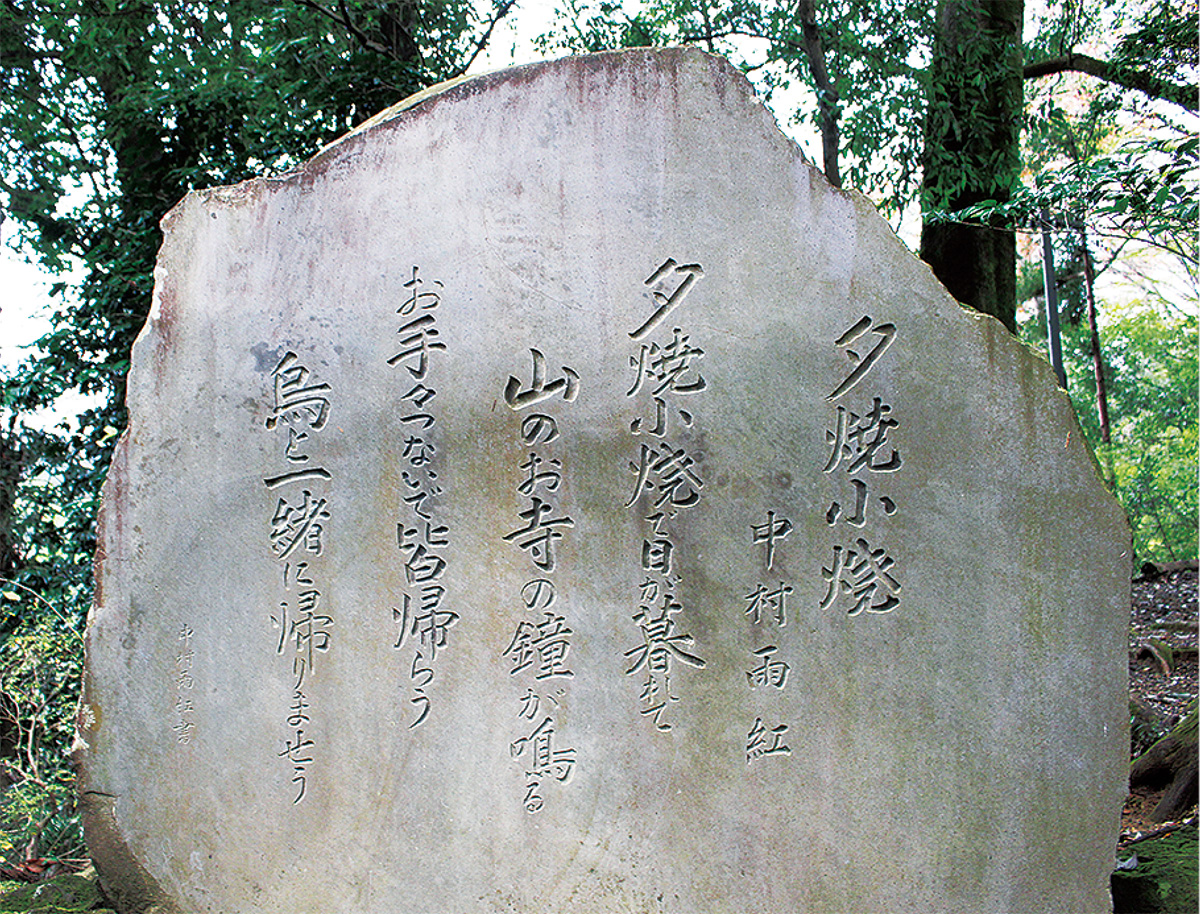 夕焼小焼
中村雨紅
夕焼小焼で日が暮れて
山のお寺の鐘が鳴る
お手々つないで皆帰らう
烏と一緒に帰りませう
中村雨紅書